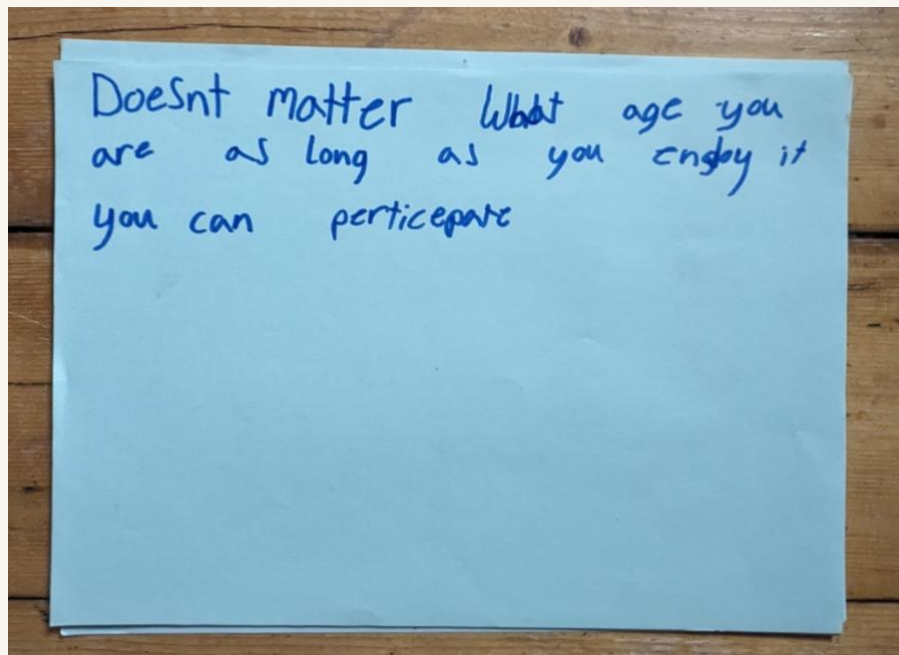 Doesnt matter What age you
are as long as you enjoy it
you can perticepate